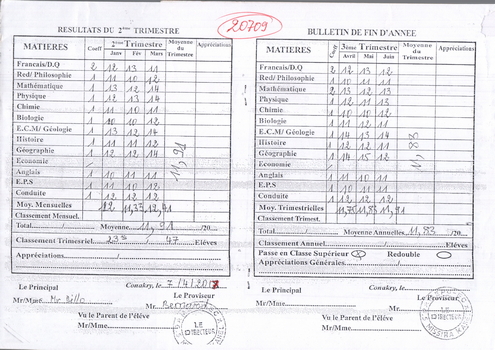 20709
RESULTATS DU 2ème TRIMESTRE
MATIERES Coeff 2ème Trimestre Moyenne du Trimestre Appréciations
Jan Fev Mars
Francais/D.Q 2 12 13 11
Red/ Philosophie 1 11 10 12
Mathématique 1 13 12 14
Physique 1 12 13 14
Chimie 1 11 10 11
Biologie 1 10 10 12
E.C.M/ Géologie 1 13 12 14
Histoire 1 11 11 11
Géographie 1 12 12 14
Economie
Anglais 1 10 11 11
E.P.S 1 11 10 12
Conduite 1 12 12 12
11,91
Moy. Mensuelles 12 11,33 12,91
Classement Mensuel.
Total / Moyenne 11,91 /20
Classement Trimesriel 23è / 47 Elèves
Appréciations
Conakry, le 7/4/2018
Le Principal Le Proviseur
Mr/Mme: Mr Billo Mr
Vu le Parent de l'éléve
Mr/Mme
LE DIRECTEUR
BULLETIN DE FIN D'ANNEE
MATIERES Coeff 3ème Trimestre Moyenne du Trimestre Appréciations
Avril Mai Juin
Francais/D.Q 2 12 13 12
Red/ Philosophie 1 11 10 11
Mathématique 2 13 12 13
Physique 1 12 11 13
Chimie 1 10 11 11
Biologie 1 11 12 11
E.C.M/ Géologie 1 14 13 14
Histoire 1 12 11 12
Géographie 1 14 15 12
Economie
Anglais 1 11 10 11
E.P.S 1 10 11 11
Conduite 1 12 12 12
11,83
Moy. Trimestrielles 11,75 11,83 11,91
Classement Trimest.
Total / Moyenne Annuelles 11,83 /20
Classement Annuel. Eléves
Passe en Classe Supérieur X Redouble
Appréciations Générales
Conakry, le
Le Principal Le Proviseur
Mr/Mme: Mr
Vu le Parent de l'éléve
Mr/Mme
LE DIRECTEUR